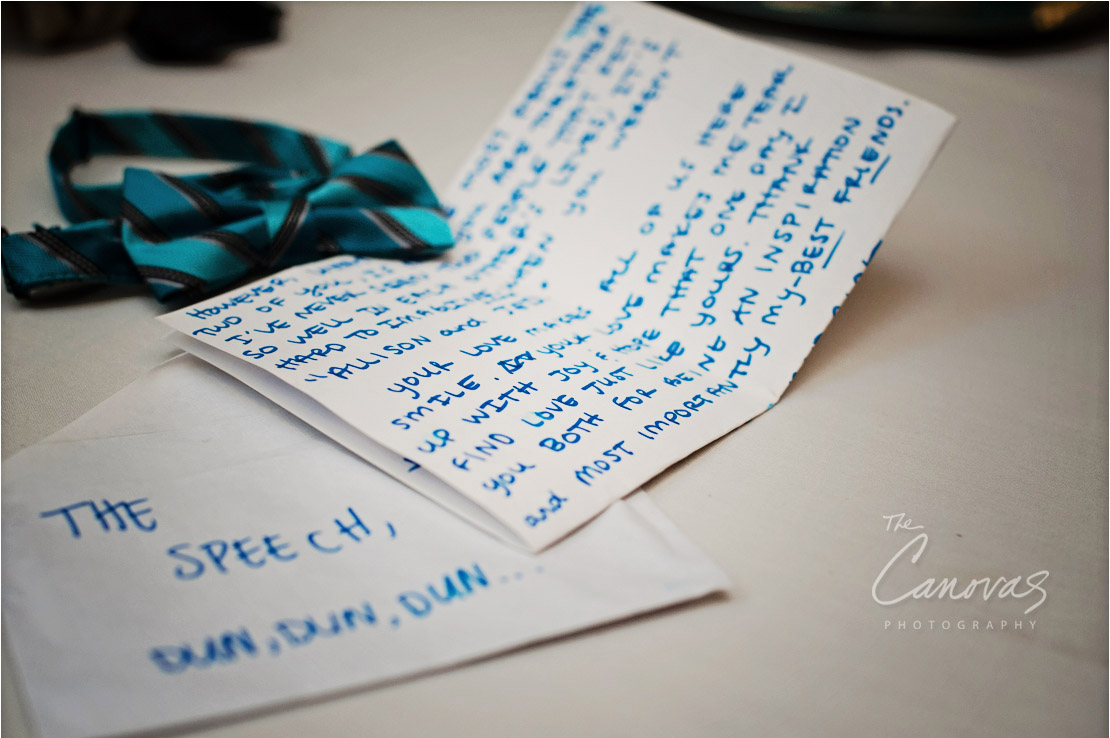 HOWEVER, MOST ABOUT THE
TWO OF YOU IS YOU ARE TOGETHER
I'VE NEVER SEEN TWO PEOPLE THAT FIT
SO WELL IN EACH OTHER'S LIVES, IT'S
HARD TO IMAGINE WHEN YOU WEREN'T
"ALLISON and JED.
YOUR LOVE MAKES ALL OF US HERE
SMILE. YOUR LOVE MAKES ME TEAR
UP WITH JOY. HOPE THAT ONE DAY I
FIND LOVE JUST LIKE YOURS. THANK
YOU BOTH FOR BEING AN INSPIRATION
and MOST IMPORTANTLY MY-BEST FRIENDS.
THE
SPEECH,
DUN, DUN, DUN...
The
Canovas
PHOTOGRAPHY